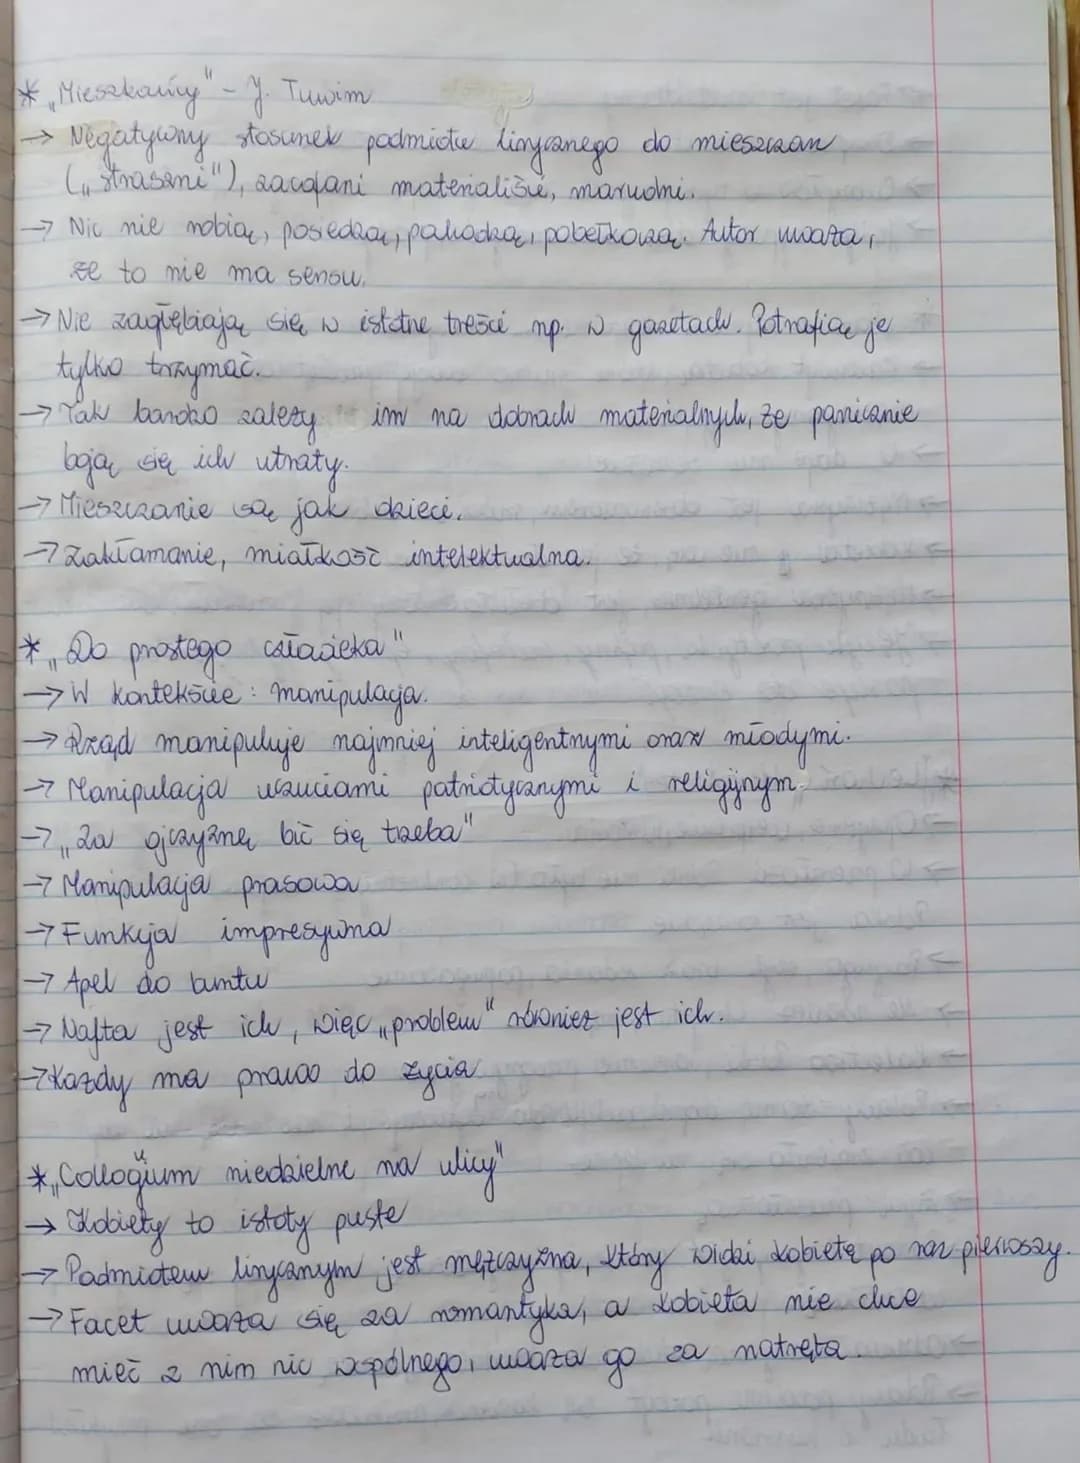 * „Mieszkańcy" - J. Tuwim
→ Negatywny stosunek podmiotu lirycznego do mieszczan
(„straszni"), zacofani materialiści, marudni.
→ Nic nie robią, posiedzą, pochodzą, pobełkoczą. Autor uważa,
że to nie ma sensu.
→ Nie zagłębiają się w istotne treści np. w gazetach. Potrafią je
tylko trzymać.
→ Tak bardzo zależy im na dobrach materialnych, że panicznie
boją się ich utraty.
→ Mieszczanie są jak dzieci.
→ Zakłamanie, miałkość intelektualna.
* „Do prostego człowieka"
→ W kontekście: manipulacja.
→ Rząd manipuluje najmniej inteligentnymi oraz młodymi.
→ Manipulacja uczuciami patriotycznymi i religijnym.
→ „Za ojczyznę bić się trzeba"
→ Manipulacja prasowa
→ Funkcja impresywna
→ Apel do buntu
→ Nafta jest ich, więc „problem" również jest ich.
→ Każdy ma prawo do życia
* „Collogium niedzielne na ulicy"
→ Kobiety to istoty puste
→ Podmiotem lirycznym jest mężczyzna, który widzi kobietę po raz pierwszy.
→ Facet uważa się za romantyka, a kobieta nie chce
mieć z nim nic wspólnego, uważa go za natręta.